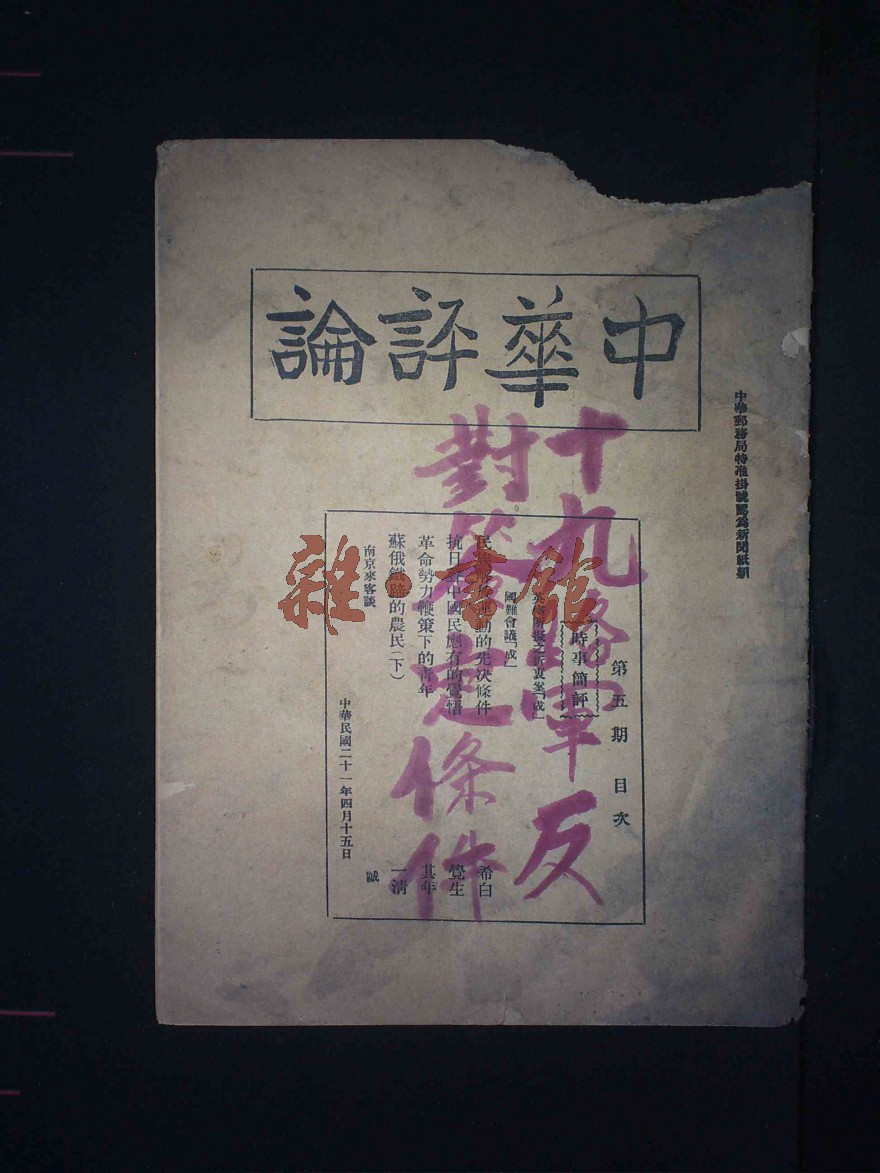 中華評論
中華郵務局特准掛號認爲新聞紙類
十九路軍反
對簽定條件
第五期 目次
時事簡評
國難會議「成」
的先决條件 希白
抗日 中國民應有的覺悟 覺生
革命勢力鞭策下的青年 其年
蘇俄鐵蹄的農民(下) 一清
南京來客談 誠
中華民國二十一年四月十五日
雜·書館